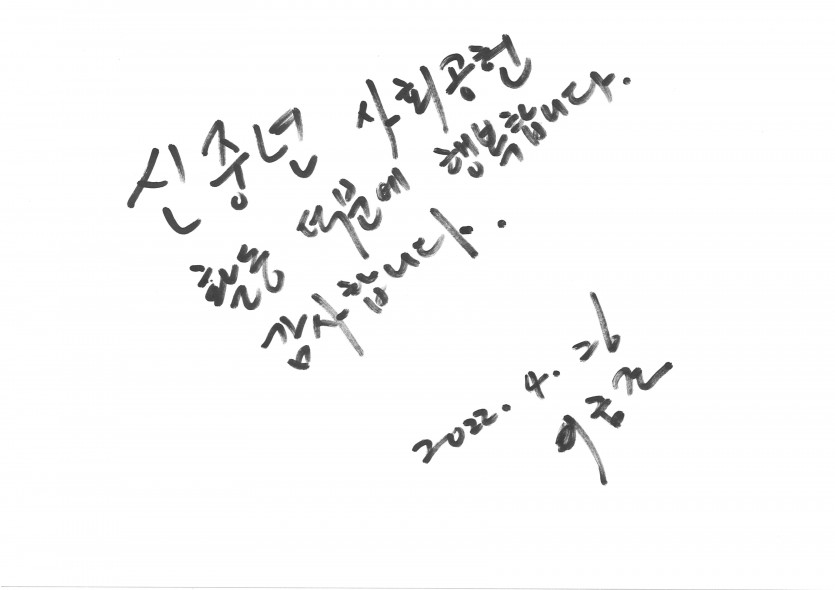 신중년 사회공헌
활동 덕분에 행복합니다.
감사합니다.
2022. 4. 26